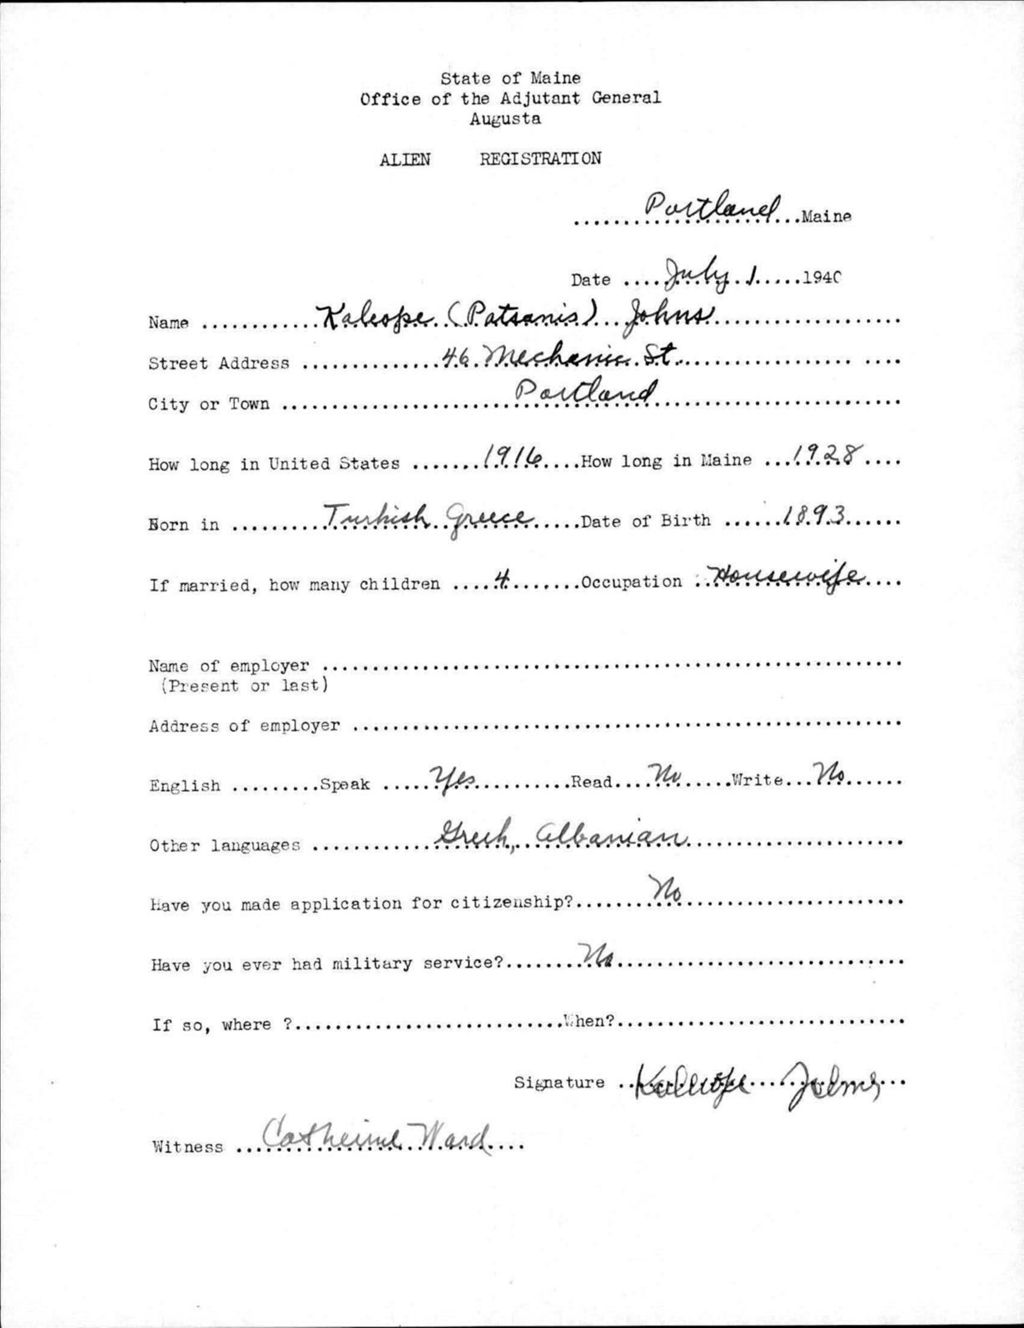 State of Maine
Office of the Adjutant General
Augusta
ALIEN REGISTRATION
Portland Maine
Date July 1 1940
Name Kaleope (Patsanis) Johns
Street Address 46 Mechanic St.
City or Town Portland
How long in United States 1916 How long in Maine 1928
Born in Turkish Greece Date of Birth 1893
If married, how many children 4 Occupation Housewife
Name of employer
(Present or last)
Address of employer
English Speak Yes Read No Write No
Other languages Greek, Albanian
Have you made application for citizenship? No
Have you ever had military service? No
If so, where ? When?
Signature Kaleope Johns
Witness Catherine Ward